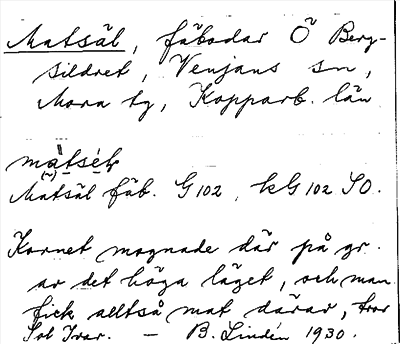 Matsäl, fäbodar Ö Berg-
sildret, Venjans sn,
Mora tg, Kopparb. län
Matsäl fäb. G102, kG102 SO.
Kornet mognade där på gr.
av det höga läget, och man
fick alltså mat därav, tror
Sol Ivar. – B. Lindén 1930.